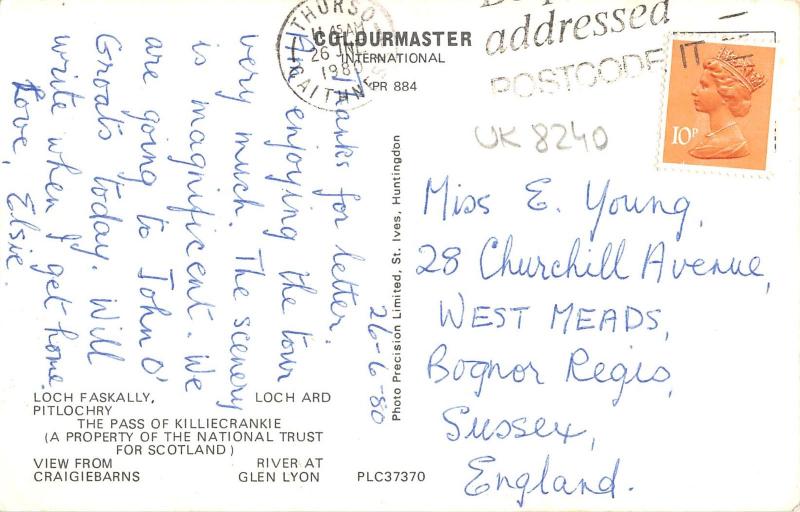 THURSO
11 45AM
26 JNE
1980
CAITHNESS
COLOURMASTER
INTERNATIONAL
PR 884
addressed
POSTCODE IT
10P
UK 8240
26-6-80
Thanks for letter.
enjoying the tour
very much. The scenery
is magnificent. We
are going to John O'
Groats today. Will
write when I get home.
Love,
Elsie.
Miss E. Young,
28 Churchill Avenue,
WEST MEADS,
Bognor Regis,
Sussex,
England.
Photo Precision Limited, St. Ives, Huntingdon
LOCH FASKALLY, LOCH ARD
PITLOCHRY
THE PASS OF KILLIECRANKIE
(A PROPERTY OF THE NATIONAL TRUST
FOR SCOTLAND)
VIEW FROM RIVER AT
CRAIGIEBARNS GLEN LYON PLC37370